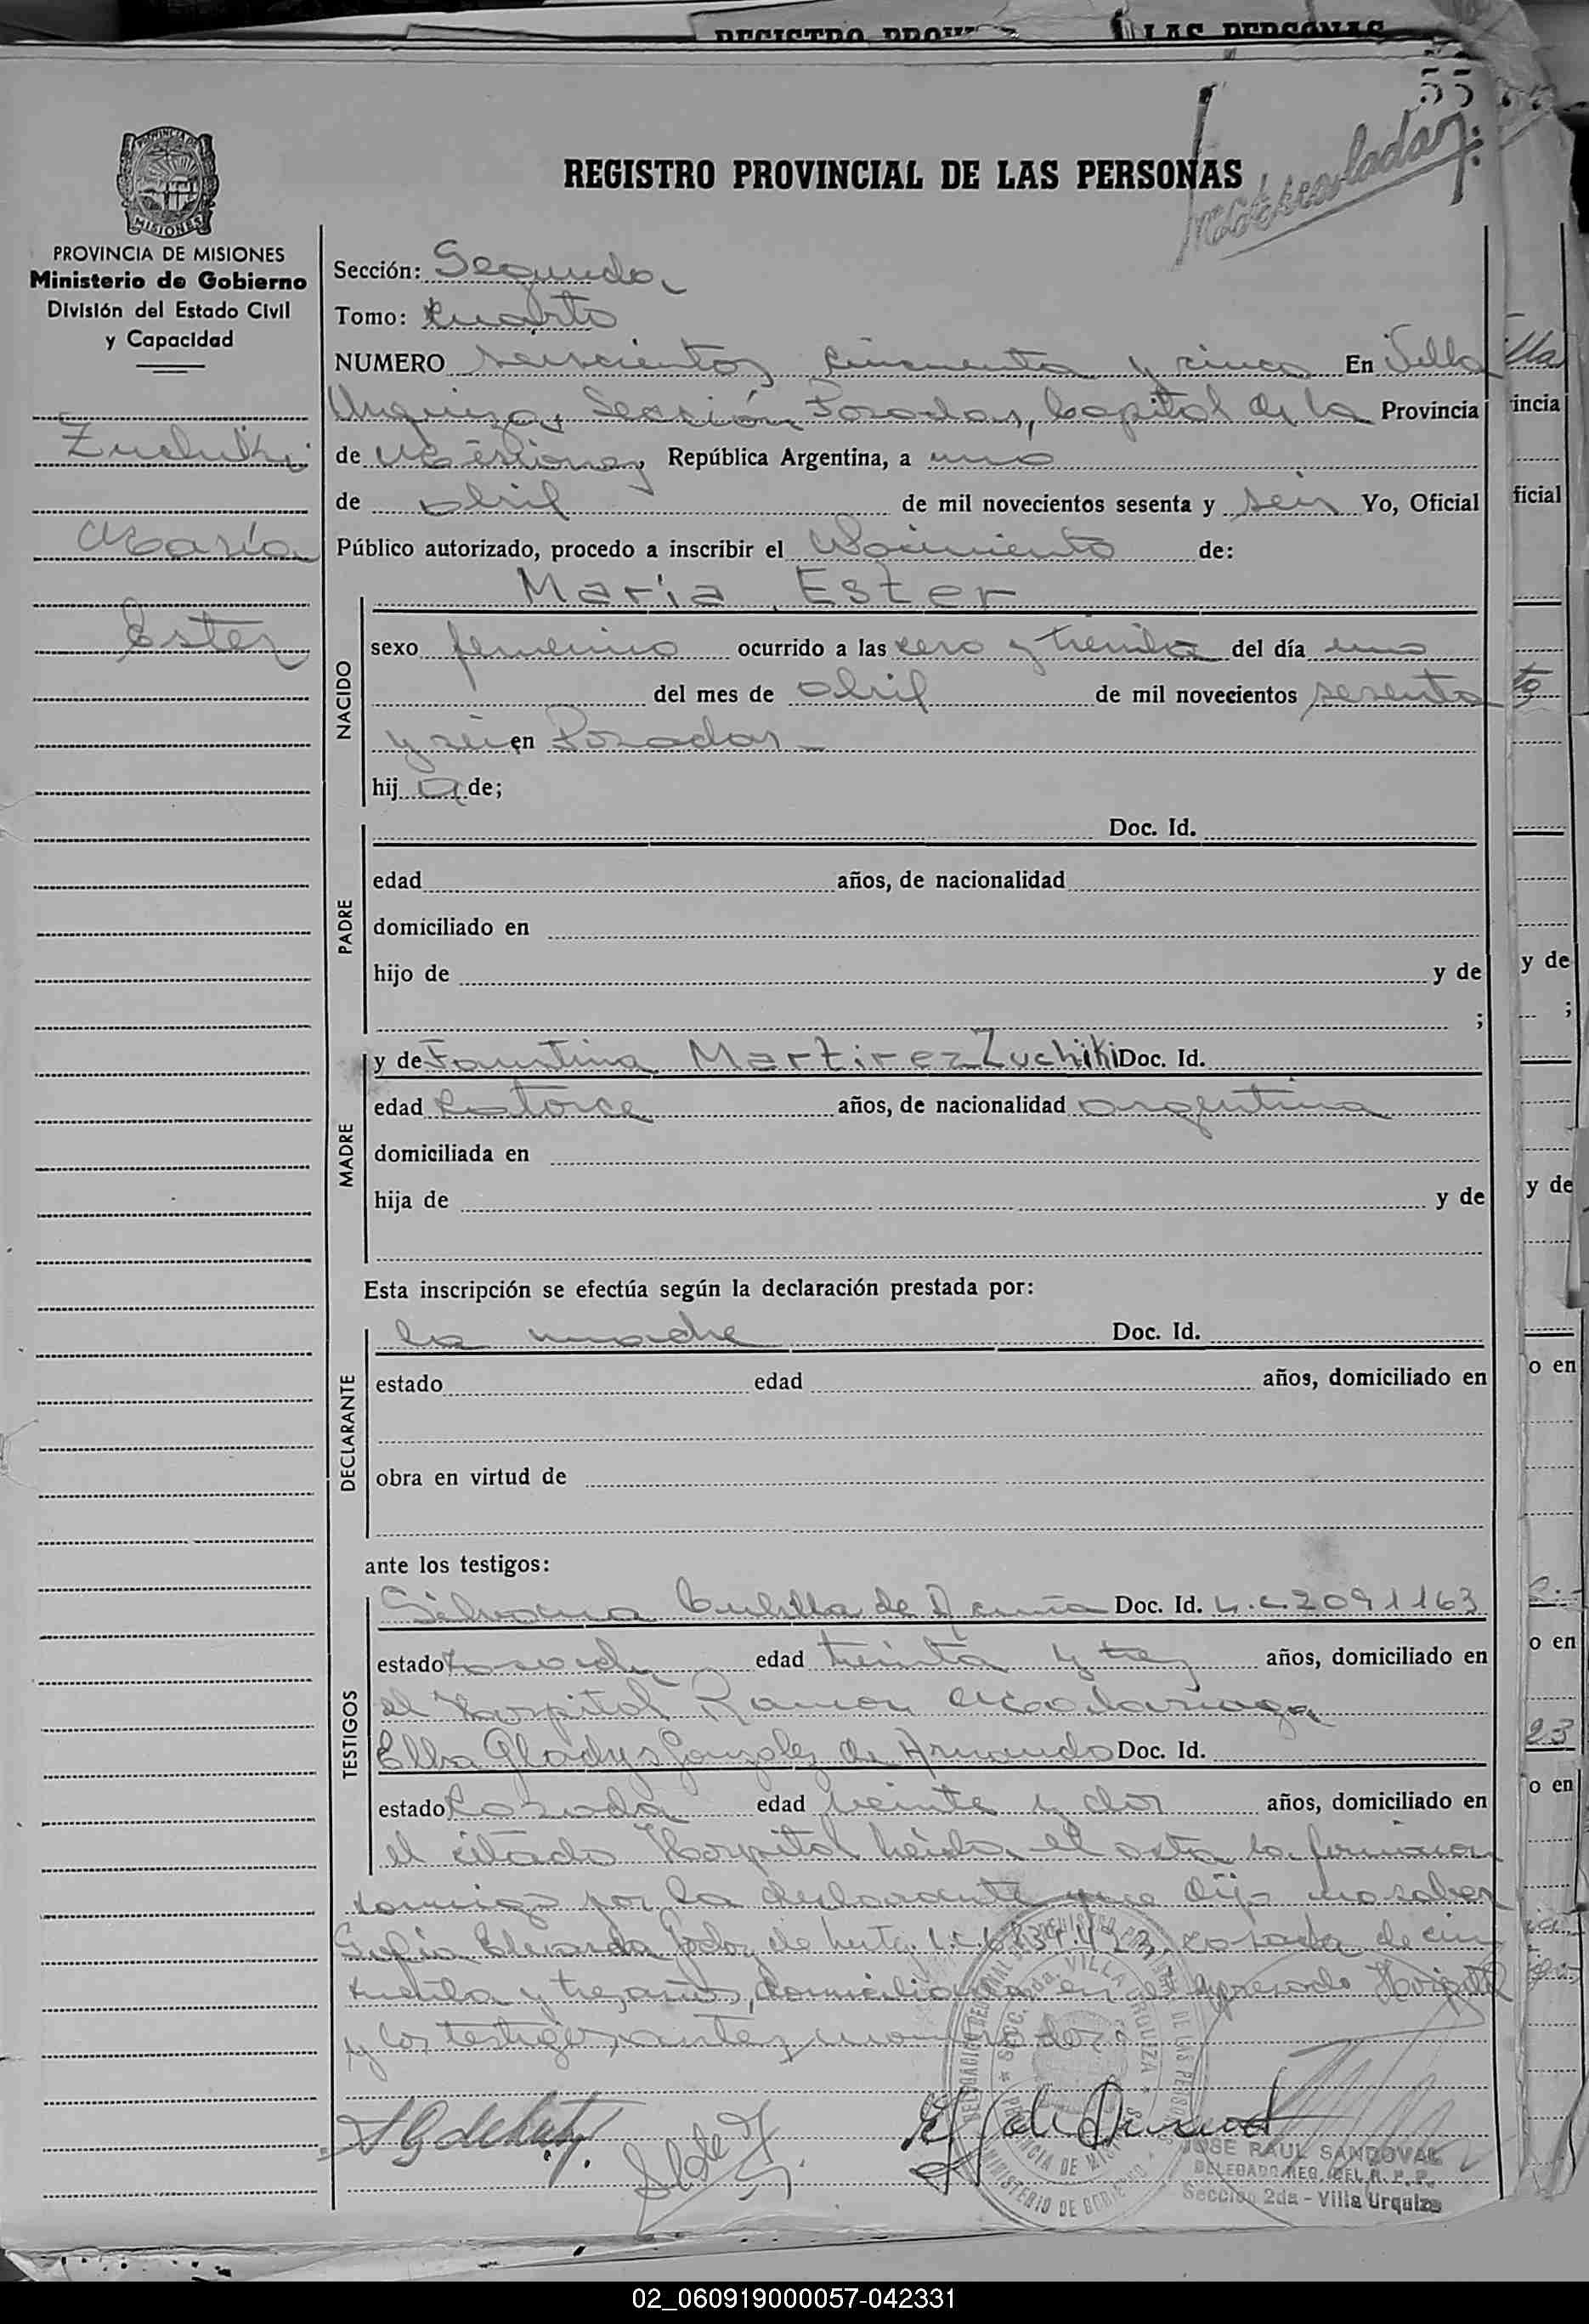 REGISTRO PROVINCIAL DE LAS PERSONAS
55
Matriculada
PROVINCIA DE MISIONES
Ministerio de Gobierno
División del Estado Civil
y Capacidad
Zuchiki
María
Ester
Sección: Segunda
Tomo: Cuarto
NUMERO seiscientos cincuenta y cinco En Villa
Urquiza, Sección Posadas, Capital de la Provincia
de Misiones, República Argentina, a uno
de abril de mil novecientos sesenta y seis Yo, Oficial
Público autorizado, procedo a inscribir el Nacimiento de:
NACIDO
Maria Ester
sexo femenino ocurrido a las cero y treinta del día uno
del mes de abril de mil novecientos sesenta
y seis en Posadas
hij a de;
PADRE
Doc. Id.
edad años, de nacionalidad
domiciliado en
hijo de y de
;
MADRE
y de Faustina Martirez Zuchiki Doc. Id.
edad Catorce años, de nacionalidad argentina
domiciliada en
hija de y de
Esta inscripción se efectúa según la declaración prestada por:
DECLARANTE
la madre Doc. Id.
estado edad años, domiciliado en
obra en virtud de
ante los testigos:
TESTIGOS
Silvana de Acuña Doc. Id. L.C. 2091163
estado casada edad treinta y tres años, domiciliado en
el Hospital Ramon Madariaga
Elba Gladys Gonzalez de Doc. Id.
estado Casada edad veinte y dos años, domiciliado en
el citado Hospital leida el acta la firmaron
conmigo por la declarante que dijo no saber
Godoy de casada de cin
cuenta y tres años, domiciliada en el Hospital
y los testigos antes nombrados
SECC. 2da. VILLA URQUIZA
PROVINCIA DE MISIONES
MINISTERIO DE GOBIERNO
JOSE RAUL SANDOVAL
DELEGADO REG. DEL R. P. P.
Sección 2da - Villa Urquiza
02_060919000057-042331